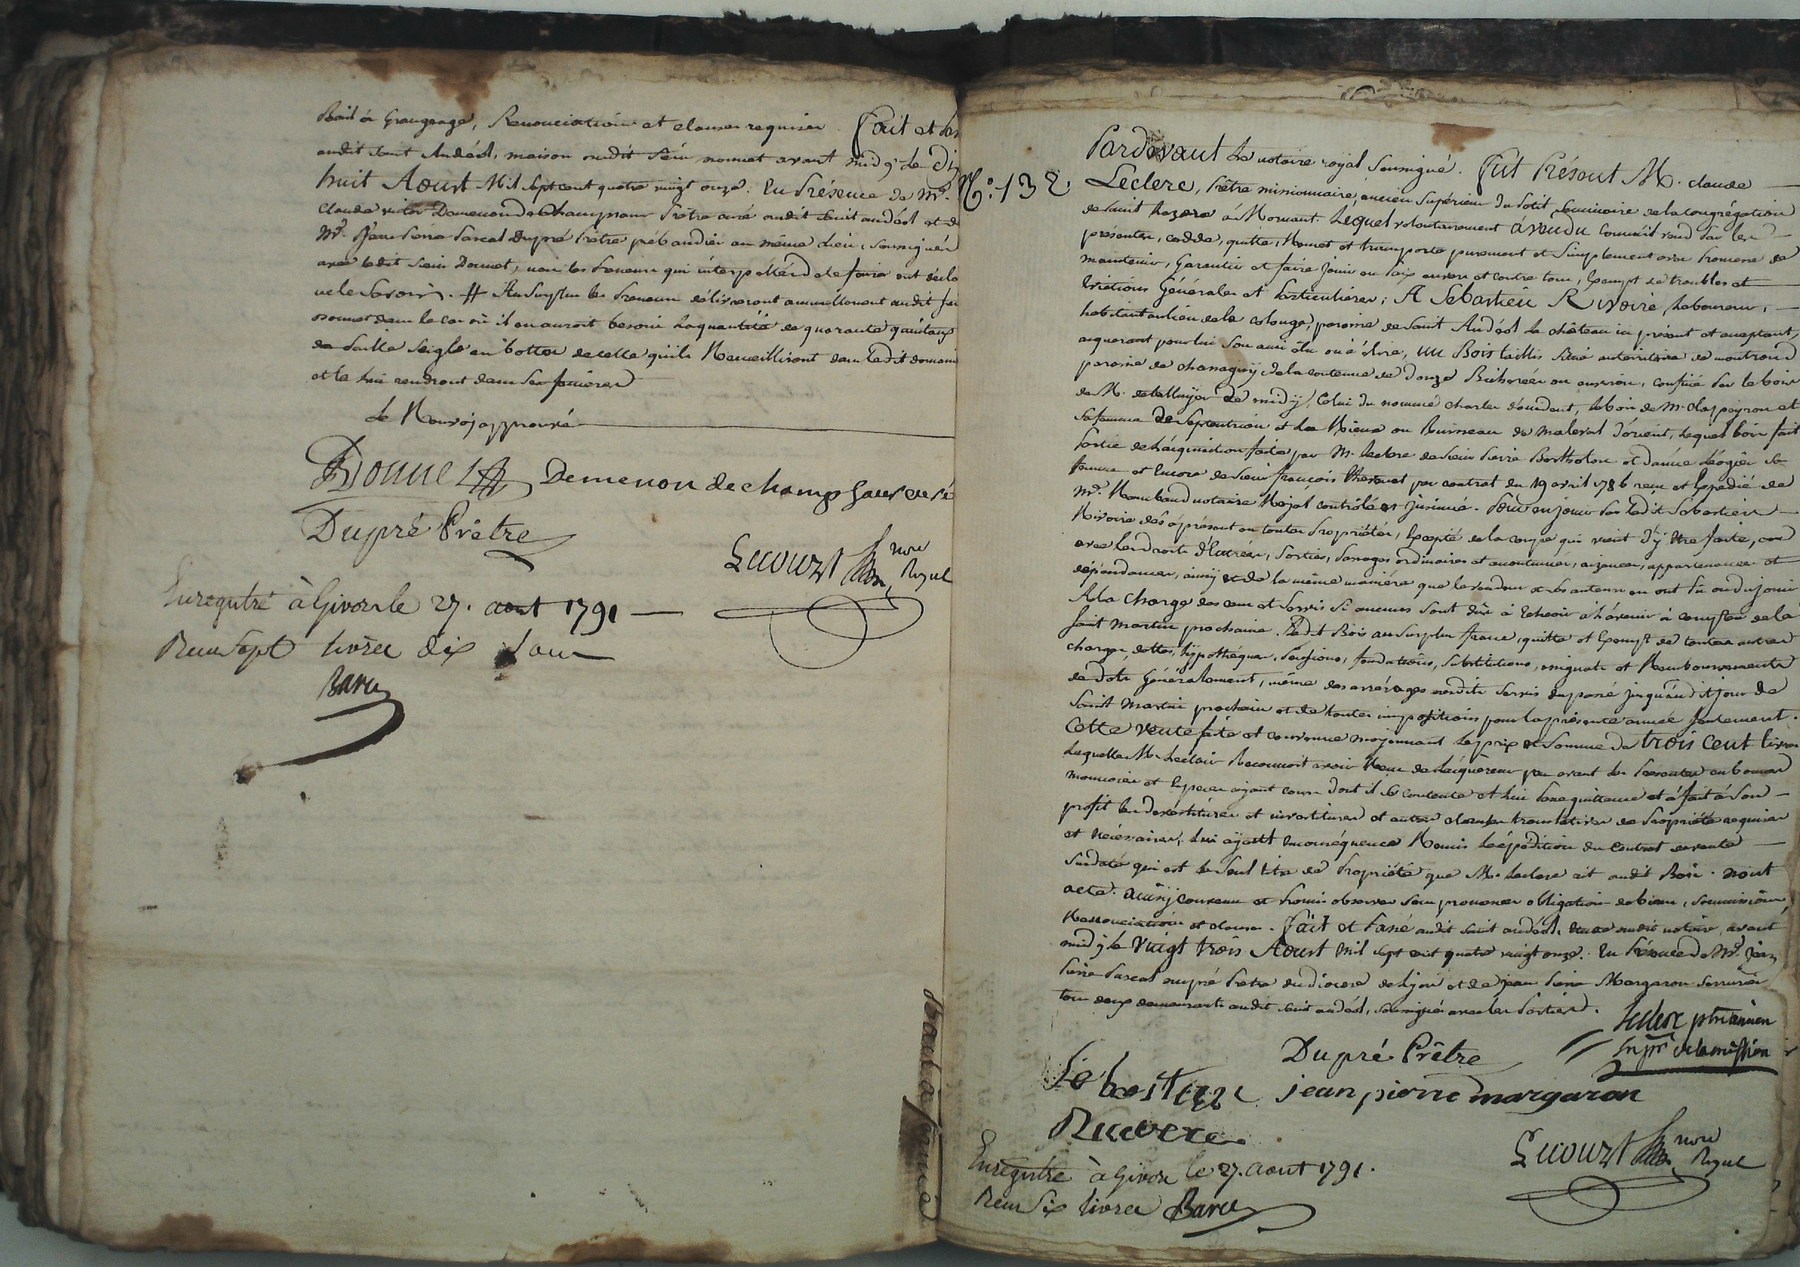 Bail à Grangeage, Renonciation et clauses requises. Fait et
audit Saint Andéol, maison audit Sieur Donnet avant midy le dix
huit Aoust Mil Sept cent quatre vingt onze. En Présence de Mr.
Claude victor Demenon de Champsaur Prêtre curé audit Saint andéol et de
Mr. Jean Pierre Pascal Dupré Prêtre prébandier au même Lieu, Soussignés
avec ledit Sieur Donnet, non les Preneurs qui interpellés de le faire ont déclaré
ne le Savoir. # Au Surplus les Preneurs délivreront annuellement audit
Donnet dans le cas où il en auroit besoin la quantité de quarante quintaux
de Paille Seigle en bottes de celle qu'ils Recueilliront dans ledit domaine
et le lui rendront dans Ses fenières
Le Renvoj approuvé
Donnet Demenon de champsaur curé
Dupré Prêtre
nore Royal
Enregistré à Givors le 27. aout 1791
Reçu Sept livres dix Sous
Baru
N.° 132
Pardevant Le notaire royal Soussigné. Fut Présent M. claude
Leclerc, Prêtre missionnaire, ancien Supérieur du Petit Seminaire de la congrégation
de Saint Lazare à Mornant. Lequel volontairement à vendu comme il vend par les
présentes, cedde, quitte, Remet et transporte purement et Simplement avec Promesse de
maintenir, Garantir et faire Jouir en paix envers et contre tous, Exempt de troubles et
Evictions Générales et Particulières, A Sebastien Rivoire, Laboureur,
habitant au lieu de la colonge, paroisse de Saint Andéol le château ici présent et acceptant,
acquerant pour lui Son ami élu ou à élire, un Bois taillis Situé au territoire de montrond
paroisse de chassagny de la contenue de Douze Bicherées ou environ, confiné par le bois
de M. de de midy, Celui du nommé charles d'occident, le bois de M. clapeyron et
Sa femme de Septentrion et Le Rieux ou Ruisseau de Maleval d'orient, Lequel bois fait
Partie de L'acquisition faite par M. leclerc de Sieur Pierre Bertholon et Danne Léogier Sa
femme et Encore de Sieur françois Thevenet par contrat du 19 avril 1786 reçu et Expédié de
Mr. Rambaud notaire Royal contrôlé et Insinué. Pour en jouir Par Ledit Sebastien
Rivoire dès à présent en toutes Propriétés, Excepté de la coupe qui vient d'y être faite,
avec Les droits d'Entrées, Sorties, Passages ordinaires et accoutumés, aisances, appartenances et
dépendances, ainsy et de la même manière que le vendeur et Ses auteurs en ont Eu ou du jouir
A la charge des cens et Servis Si aucuns Sont dûs à Echeoir à l'avenir à compter de la
Saint Martin prochaine. Ledit Bois au Surplus franc, quitte et Exempt de toutes autres
charges, dettes, hypothèques, Pensions, fondations, Substitutions, et Remboursements
de dote Généralement, même des arrérages desdits Servis du passé jusqu'audit jour de
Saint Martin prochain et de toutes impositions pour la présente année Seulement.
Cette vente faite et convenue moyennant Le prix et Somme de trois cent livres
Laquelle M. Leclerc Reconnoit avoir Reçue de L'acquereur peu avant les Presentes en bonnes
monnoies et Especes ayant cours Dont il Se contente et L'en Passe quittance et à fait à Son
profit les devestitures et investitures et autres clauses translatives de Propriété requises
et Nécessaires, Lui ayant En conséquence Remis L'expédition du Contrat de vente
Susdaté qui est Le Seul titre de Propriété que M. Leclerc ait audit Bois. Dont
acte. ainsÿ convenu et Promis observer Sous promesses obligation de biens, Soumissions,
Renonciation et clauses. Fait et Passé audit Saint andéol, Etude audit notaire, avant
midy le Vingt trois Aoust Mil Sept cent quatre vingt onze. En Présence de Mr. Jean
Pierre Pascal Dupré Prêtre du diocese de Lyon et de jean Pierre Margaron Serrurier
tous deux demeurants audit Saint andéol, Soussignés avec les Parties.
Leclerc ptre ancien
Supr. de la mission
Dupré Prêtre
Sebastien jean pierre margaron
Ruvere
nore Royal
Enregistré à Givors le 27. aout 1791.
Reçu Six livres Baru